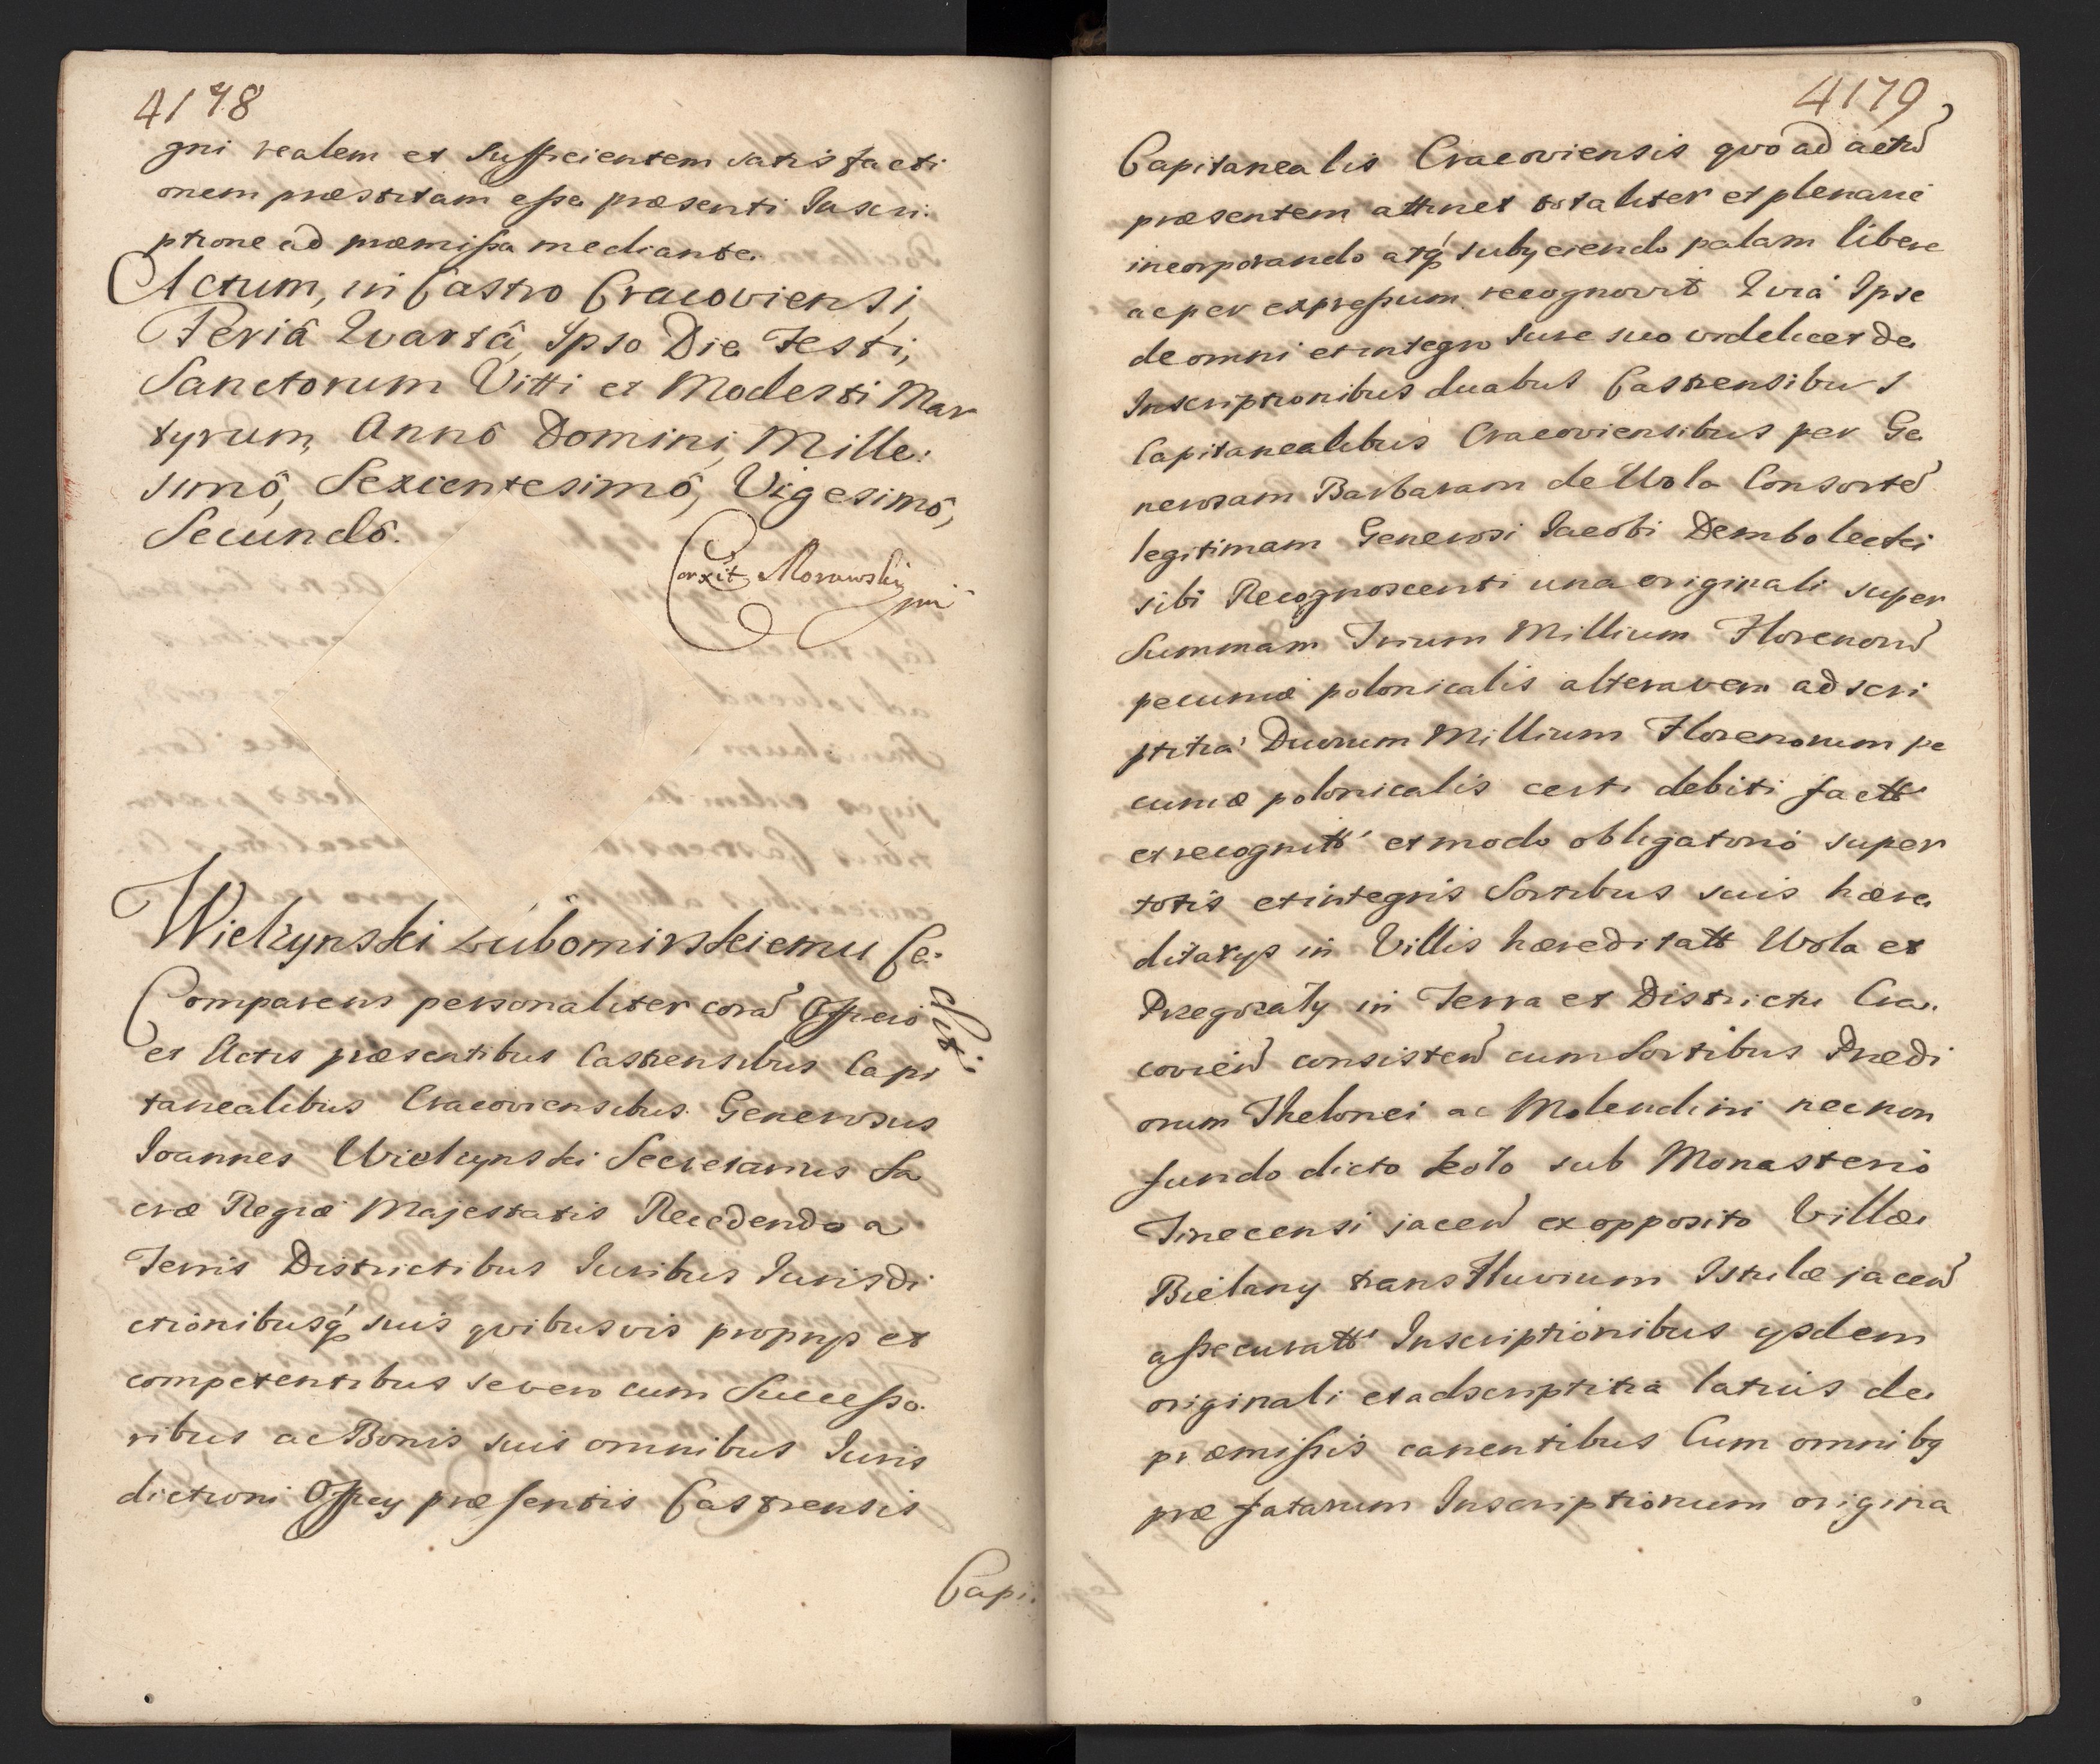 4178
gni realem et Sufficientem satisfacti
onem præstitam esse præsenti Inscri:
ptione ad præmissa mediante.
Actum, in Castro Cracoviensi,
Feriâ Quartâ, Ipso Die Festi,
Sanctorum Vitti et Modesti Mar
tyrum, Annô Domini, Mille:
simô, Sexcentesimô, Vigesimô,
Secundô.
Corxit Morawski mp
Wielzynski Lubomirskiemu Ce:
dit:
Comparens personaliter corã Officio
et Actis præsentibus Castrensibus Capi
tanealibus Cracoviensibus Generosus
Ioannes Wielzynski Secretarius Sa
cræ Regiæ Majestatis Recedendo a
Terris Districtibus Iuribus Iurisdi
ctionibusq́ suis qvibusvis proprys et
competentibus se vero cum Successo:
ribus ac Bonis suis omnibus Iuris
dictioni Officy præsentis Castrensis
Capi:
4179
Capitanealis Cracoviensis qvo ad actũ
præsentem attinet totaliter et plenarie
incorporando atq́ subyciendo palam libere
ac per expressum recognovit Qvia Ipse
de omni et integro Iure suo videlicet de
Inscriptionibus duabus Castrensibus
Capitanealibus Cracoviensibus per Ge
nerosam Barbaram de Wola Consortẽ
legitimam Generosi Iacobi Dembolecki
sibi Recognoscenti una originali super
Summam Trium Millium Florenorũ
pecuniæ polonicalis altera vero adscri
ptitia Duorum Millium Florenorum pe
cuniæ polonicalis certi debiti factt
et recognitt et modo obligatorio super
totis et integris Sortibus suis hære
ditarys in Villis hæreditatt Wola et
Przegorzały in Terra et Districtu Cra:
covieñ consisteñ cum Sortibus Prædi
orum Thelonei ac Molendini necnon
fundo dicto koło sub Monasterio
Tinecensi jaceñ ex opposito Villæ
Bielany trans Fluvium Istulæ jaceñ
assecuratt Inscriptionibus ysdem
originali et adscriptitia latius de
præmissis canentibus Cum omnibq
præfatarum Inscriptionum origina